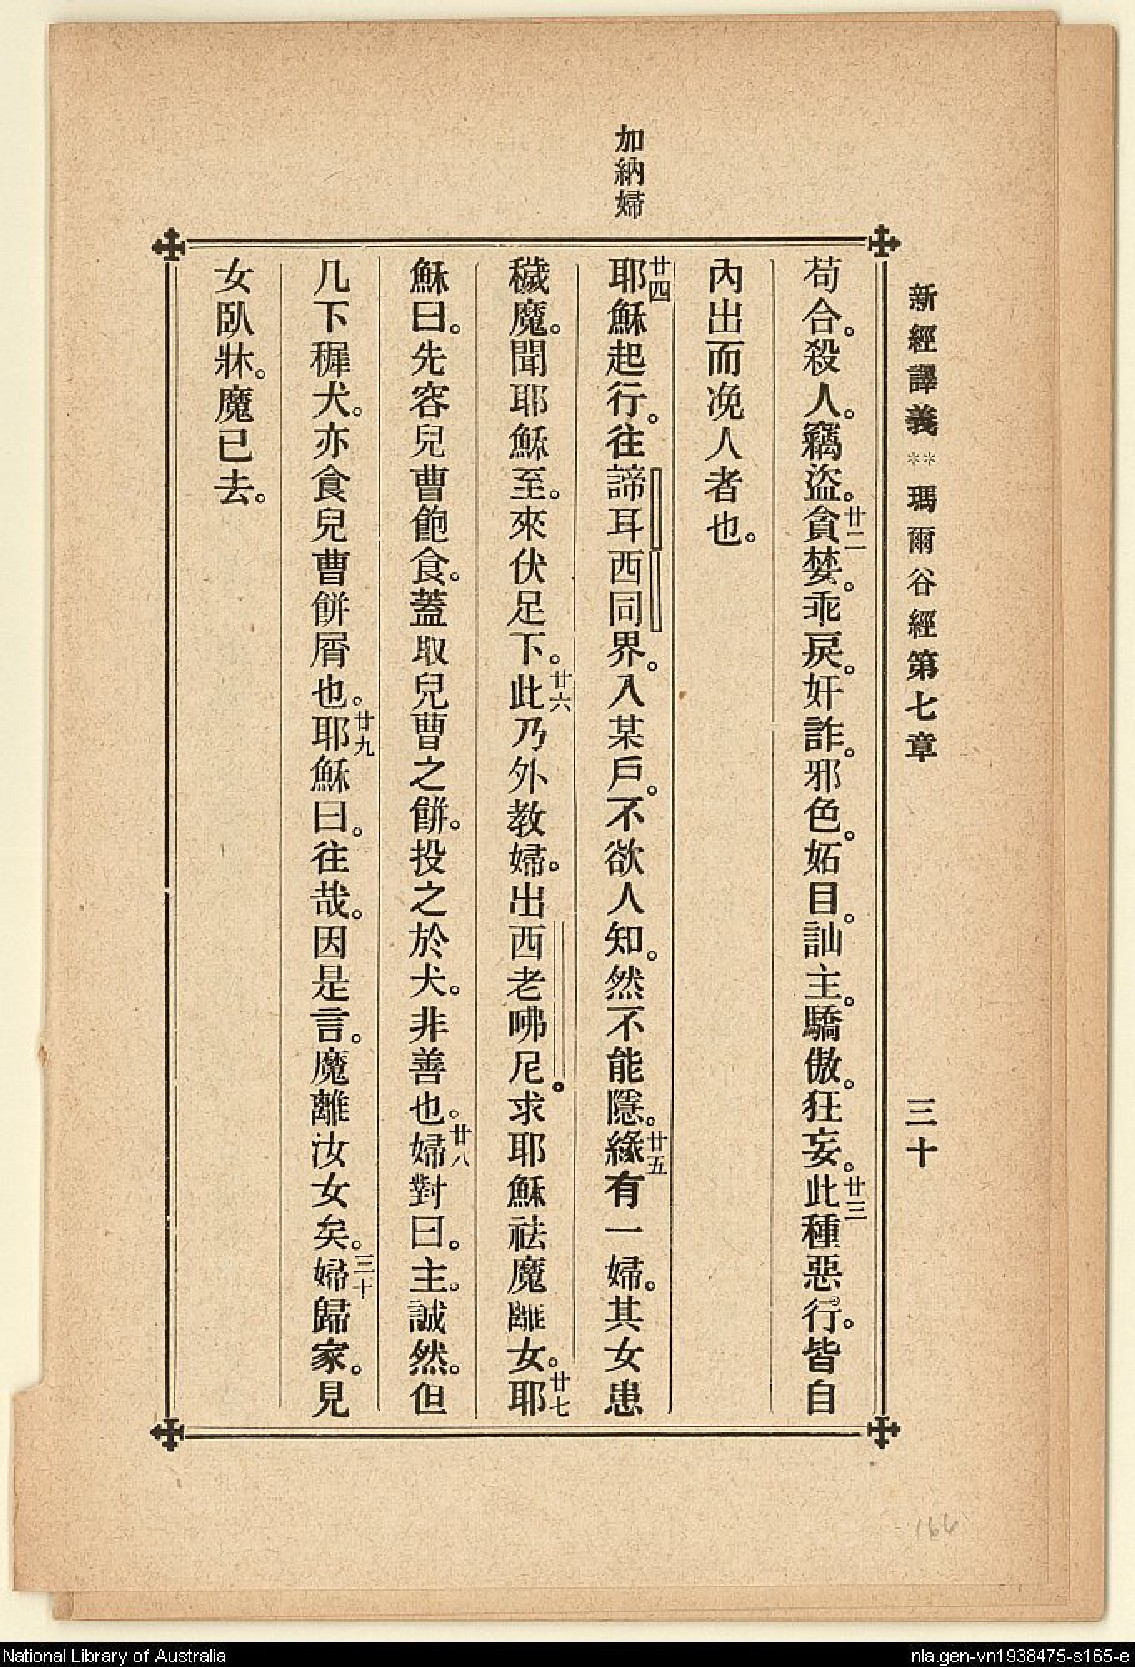 新經譯義**瑪爾谷經第七章 三十
苟合。殺人。竊盜。廿二貪婪。乖戾。奸詐。邪色。妬目。訕主。驕傲。狂妄。廿三此種惡行。皆自
內出而浼人者也。
加納婦
廿四耶穌起行。往諦耳西同界。入某戶。不欲人知。然不能隱。廿五緣有一婦。其女患
穢魔。聞耶穌至。來伏足下。廿六此乃外教婦。出西老咈尼。求耶穌祛魔離女。廿七耶
穌曰。先容兒曹飽食。蓋取兒曹之餅。投之於犬。非善也。廿八婦對曰。主。誠然。但
几下穉犬。亦食兒曹餅屑也。廿九耶穌曰。往哉。因是言。魔離汝女矣。三十婦歸家。見
女臥牀。魔已去。
166
National Library of Australia
nla.gen-vn1938475-s165-e